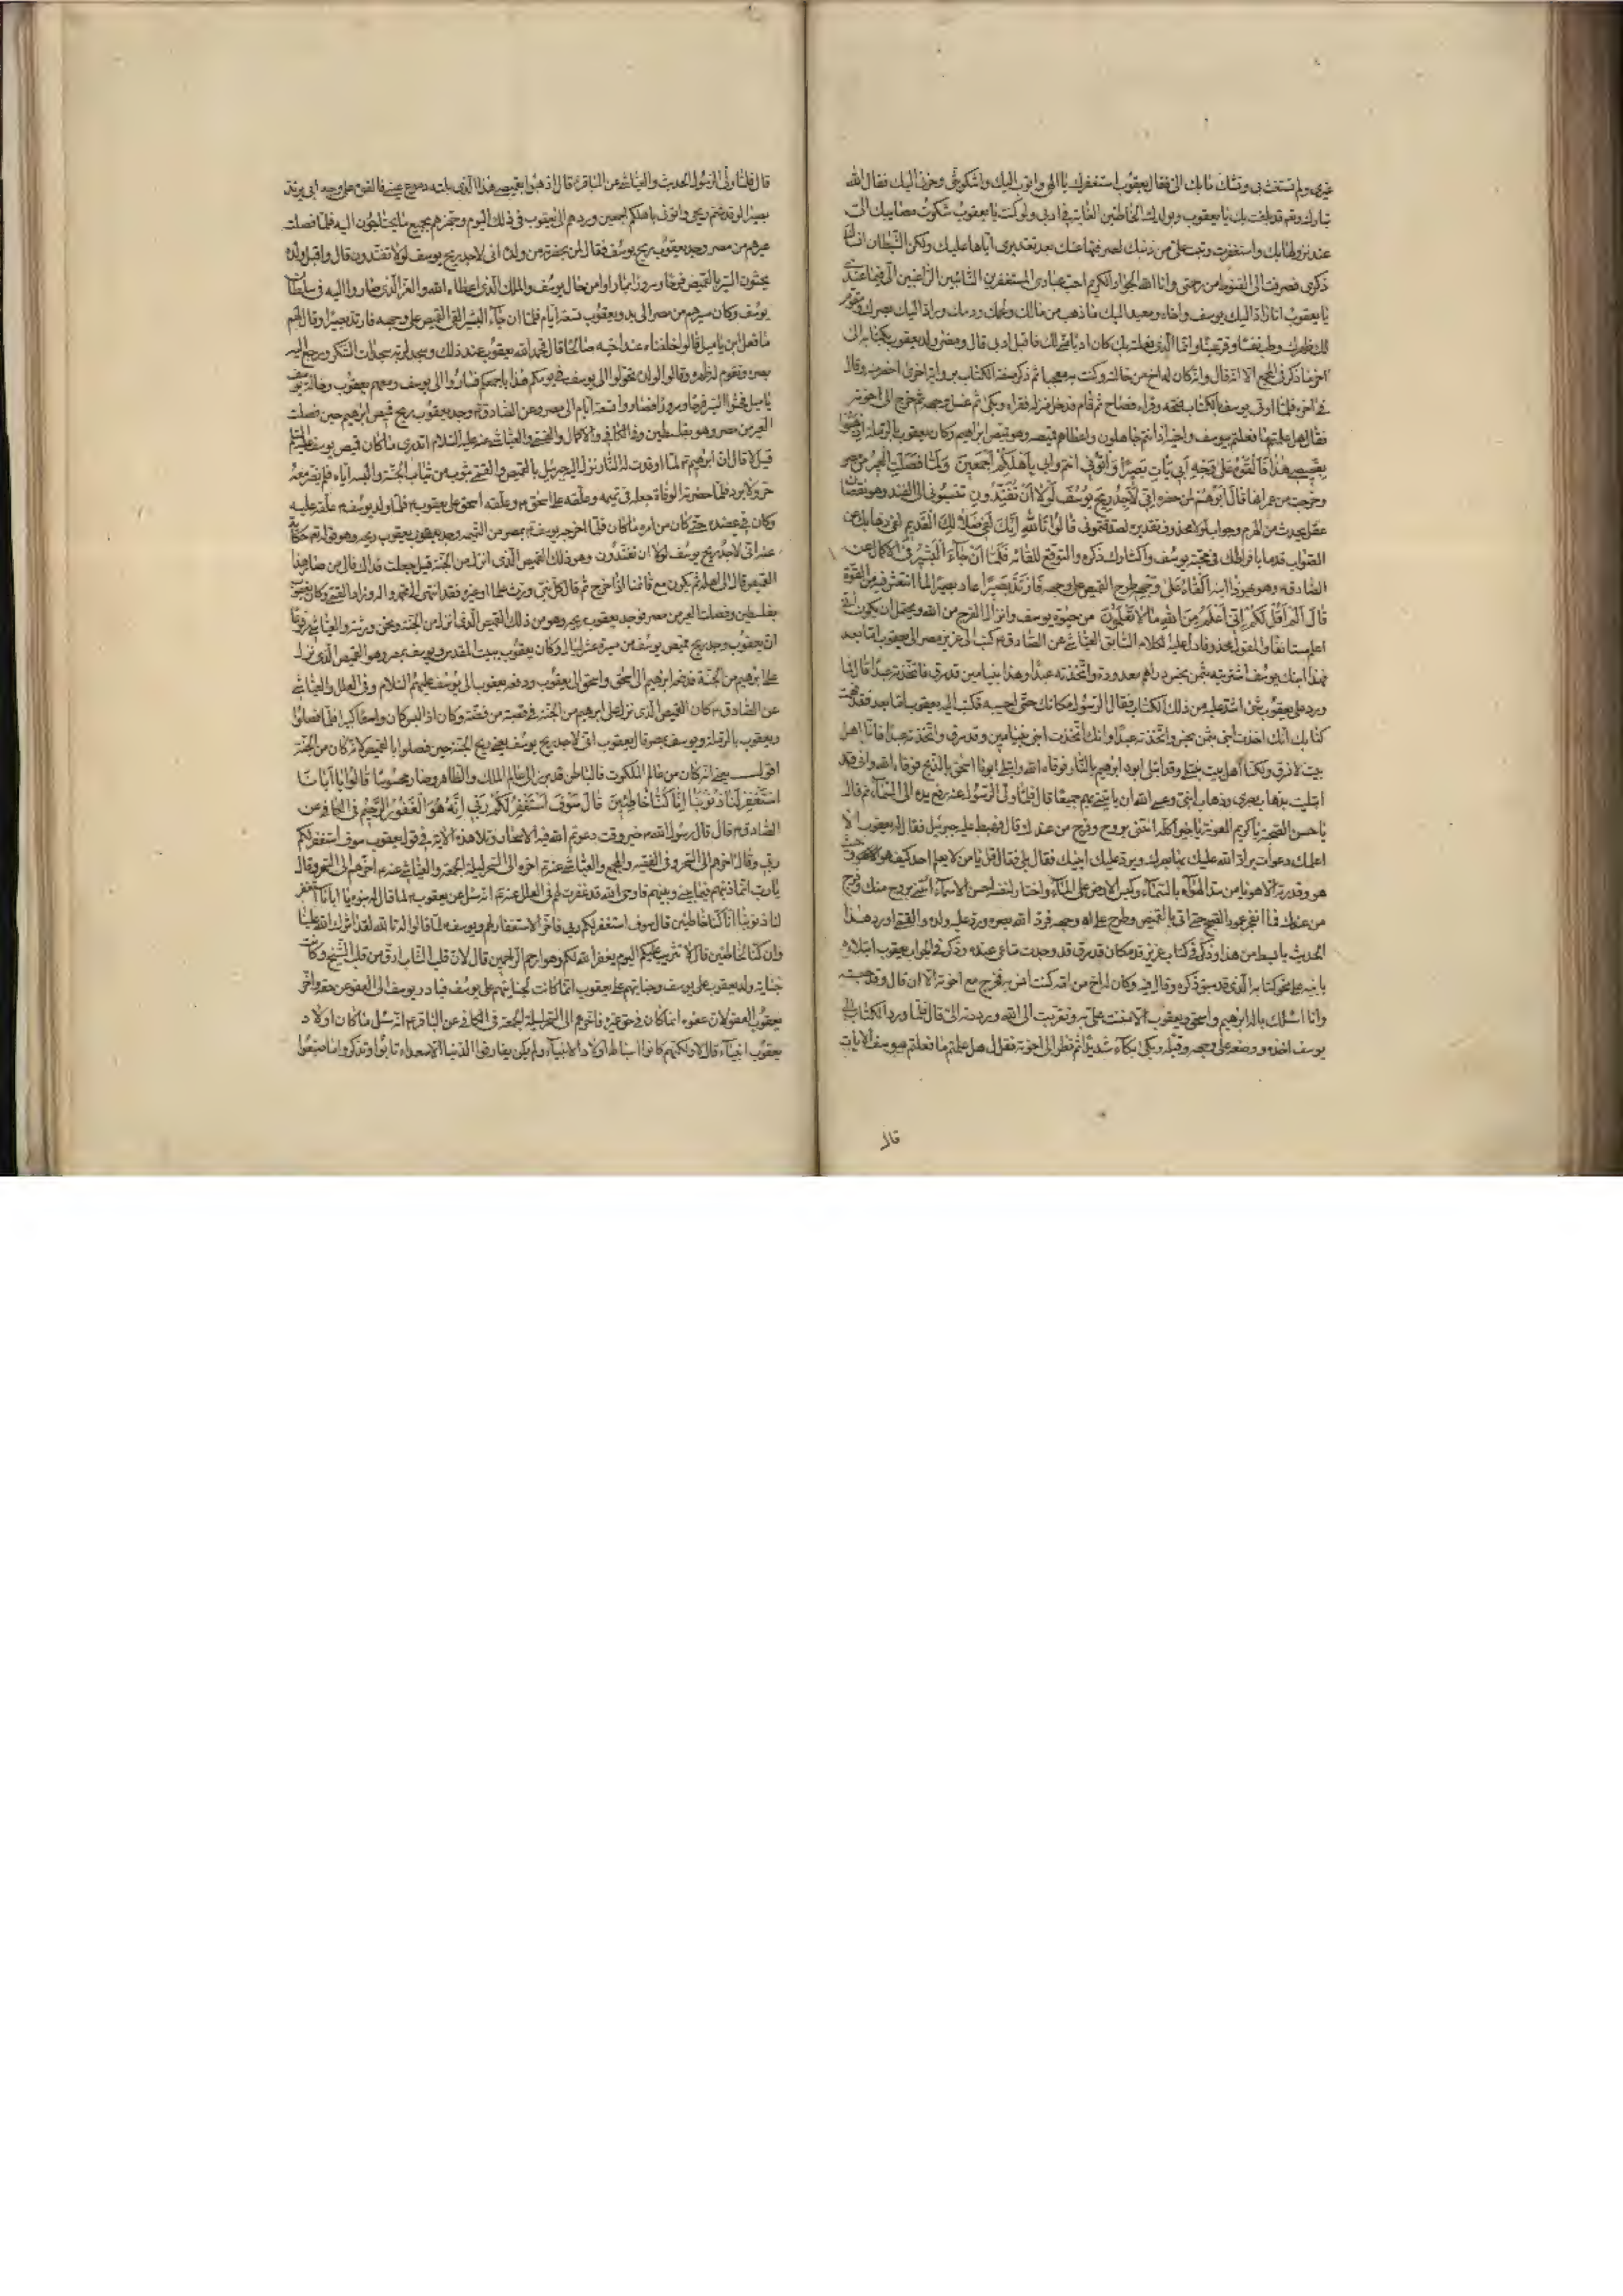 غيري ولم تستغث بي وتشك ما بك الي فقال يعقوب استغفرك يا الهي واتوب اليك واشكو بثي وحزني اليك فقال الله
تبارك وتعالى قد بلغت بك يا يعقوب وبولدك الخاطئين الغاية في ادبي ولو كنت يا يعقوب شكوت مصايبك الي
عند نزولها بك واستغفرت وتبت الي من ذنبك لصرفتها عنك بعد تقديري اياها عليك ولكن الشيطان انساك
ذكري فصرت الى القنوط من رحمتي وانا الله الجواد الكريم احب عبادي المستغفرين التائبين الراغبين الي فيما عندي
يا يعقوب انا راد اليك يوسف واخاه ومعيد اليك ما ذهب من مالك ولحمك ودمك وراد اليك بصرك ومقوم
لك ظهرك وطب نفسا وقر عينا وانما الذي فعلته بك كان ادبا مني لك فاقبل ادبي قال ومضى ولد يعقوب بكتابه الى
في اخره فلما اوتي يوسف الكتاب فتحه وقراه فصاح ثم قام فدخل منزله فقراه وبكى ثم غسل وجهه ثم خرج الى اخوته
فقال هل علمتم ما فعلتم بيوسف واخيه اذ انتم جاهلون واعطاهم قميصه وهو قميص ابراهيم وكان يعقوب بالرملة اذهبوا
بقميصي هذا فالقوه على وجه ابي يات بصيرا واتوني انتم وابي باهلكم اجمعين ولما فصلت العير من مصر
وخرجت من عمرانها قال ابوهم لمن حضره اني لاجد ريح يوسف لولا ان تفندون تنسبوني الى الفند وهو نقصان
عقل يحدث من الهرم وجواب لولا محذوف تقديره لصدقتموني قالوا تالله انك لفي ضلالك القديم لفي ذهابك عن
الصواب قدما بافراطك في محبة يوسف واكثارك ذكره والتوقع للقائه فلما ان جاء البشير في الاكمال عن
الصادق وهو يهودا ابنه القاه على وجهه طرح القميص على وجهه فارتد بصيرا عاد بصيرا لما انتعش فيه من القوة
قال الم اقل لكم اني اعلم من الله ما لا تعلمون من حيوة يوسف وانزال الفرج من الله ويحتمل ان يكون اني
فهذا ابنك يوسف اشتريته بثمن بخس دراهم معدودة واتخذته عبدا وهذا ابنك بنيامين قد سرق فاتخذته عبدا قال فما
ورد على يعقوب شيء اشد عليه من ذلك الكتاب فقال للرسول مكانك حتى اجيبه فكتب اليه يعقوب اما بعد فقد فهمت
كتابك انك اخذت ابني بثمن بخس واتخذته عبدا وانك اتخذت ابني بنيامين وقد سرق واتخذته عبدا فانا اهل
بيت لا نسرق ولكنا اهل بيت نبتلى وقد ابتلي ابونا ابراهيم بالنار فوقاه الله وابتلي ابونا اسحق بالذبح فوقاه الله واني قد
ابتليت بذهاب بصري وذهاب ابني وعسى الله ان ياتيني بهم جميعا قال فلما ولى الرسول عنه رفع يده الى السماء ثم قال
يا حسن الصحبة يا كريم المعونة يا خيرا كله ائتني بروح وفرج من عندك قال فهبط عليه جبرئيل فقال له يعقوب الا
اعلمك دعوات يرد الله عليك بها بصرك ويرد عليك ابنيك فقال بلى فقال قل يا من لا يعلم احد كيف هو وحيث
هو وقدرته الا هو يا من سد الهواء بالسماء وكبس الارض على الماء واختار لنفسه احسن الاسماء ائتني بروح منك وفرج
من عندك فما انفجر عمود الصبح حتى اتي بالقميص وطرح على وجهه فرد الله بصره ورد عليه ولده والقمي اورد هذا
وانا اسئلك باله ابراهيم واسحق ويعقوب الا مننت علي به وتقربت الى الله ورددته الي قال فلما ورد الكتاب الى
يوسف اخذه ووضعه على وجهه وقبله وبكى بكاء شديدا ثم نظر الى اخوته فقال هل علمتم ما فعلتم بيوسف الايات
قال
قال فلما ولى الرسول الحديث والعياشي عن الباقر قال اذهبوا بقميصي هذا الذي بلته دموع عيني فالقوه على وجه ابي يرتد
بصيرا لو قد شم ريحي واتوني باهلكم اجمعين وردهم الى يعقوب في ذلك اليوم وجهزهم بجميع ما يحتاجون اليه فلما فصلت
عيرهم من مصر وجد يعقوب ريح يوسف فقال لمن بحضرته من ولده اني لاجد ريح يوسف لولا تفندون قال واقبل ولده
يحثون السير بالقميص فرحا وسرورا بما راوا من حال يوسف والملك الذي اعطاه الله والعز الذي صاروا اليه في سلطان
يوسف وكان مسيرهم من مصر الى بدو يعقوب تسعة ايام فلما ان جاء البشير القى القميص على وجهه فارتد بصيرا وقال لهم
ما فعل ابن ياميل قالوا خلفناه عند اخيه صالحا قال فحمد الله يعقوب عند ذلك وسجد لربه سجدات الشكر ورجع اليه
بصره وتقوم له ظهره وقال لولده تحولوا الى يوسف في يومكم هذا باجمعكم فساروا الى يوسف ومعهم يعقوب وخالة يوسف
ياميل فحثوا السير فرحا وسرورا فساروا تسعة ايام الى مصر وعن الصادق وجد يعقوب ريح قميص ابراهيم حين فصلت
العير من مصر وهو بفلسطين وفي الكافي والاكمال والقمي والعياشي عنه عليه السلام اتدري ما كان قميص يوسف
قيل لا قال ان ابراهيم لما اوقدت له النار نزل اليه جبرئيل بالقميص والقمي بثوب من ثياب الجنة والبسه اياه فلم يضره معه
حر ولا برد فلما حضرته الوفاة جعله في تميمة وعلقه على اسحق وعلقه اسحق على يعقوب فلما ولد يوسف علقه عليه
وكان في عضده حتى كان من امره ما كان فلما اخرجه يوسف بمصر من التميمة وجد يعقوب ريحه وهو قوله تعالى حكاية
عنه اني لاجد ريح يوسف لولا ان تفندون وهو ذلك القميص الذي انزل من الجنة قيل جعلت فداك فالى من صار هذا
القميص قال الى اهله ثم يكون مع قائمنا اذا خرج ثم قال كل نبي ورث علما او غيره فقد انتهى الى محمد واله وزاد القمي وكان يعقوب
بفلسطين وفصلت العير من مصر فوجد يعقوب ريحه وهو من ذلك القميص الذي انزل من الجنة ونحن ورثته والعياشي مرفوعا
ان يعقوب وجد ريح قميص يوسف من مسيرة عشر ليال وكان يعقوب ببيت المقدس ويوسف بمصر وهو القميص الذي نزل
على ابراهيم من الجنة فدفعه ابراهيم الى اسحق واسحق الى يعقوب ودفعه يعقوب الى يوسف عليهم السلام وفي العلل والعياشي
عن الصادق كان القميص الذي نزل على ابراهيم من الجنة في قصبة من فضة وكان اذا لبس كان واسعا كبيرا فلما فصلوا
ويعقوب بالرملة ويوسف بمصر قال يعقوب اني لاجد ريح يوسف يعني ريح الجنة حين فصلوا بالقميص لانه كان من الجنة
استغفر لنا ذنوبنا انا كنا خاطئين قال سوف استغفر لكم ربي انه هو الغفور الرحيم في الكافي عن
الصادق قال قال رسول الله خير وقت دعوتم الله فيه الاسحار وتلا هذه الاية في قول يعقوب سوف استغفر لكم
ربي وقال اخرهم الى السحر وفي الفقيه والمجمع والعياشي عنه اخره الى السحر ليلة الجمعة والعياشي عنه اخرهم الى السحر وقال
يا رب انما ذنبهم فيما بيني وبينهم فاوحى الله قد غفرت لهم في العلل عنه انه سئل عن يعقوب لما قال له بنوه يا ابانا استغفر
لنا ذنوبنا انا كنا خاطئين قال سوف استغفر لكم ربي فاخر الاستغفار لهم ويوسف لما قالوا له تالله لقد اثرك الله علينا
وان كنا لخاطئين قال لا تثريب عليكم اليوم يغفر الله لكم وهو ارحم الراحمين قال لان قلب الشاب ارق من قلب الشيخ وكانت
جناية ولد يعقوب على يوسف وجنايتهم على يعقوب انما كانت بجنايتهم على يوسف فبادر يوسف الى العفو عن حقه واخر
يعقوب العفو لان عفوه انما كان عن حق غيره فاخرهم الى السحر ليلة الجمعة في الكافي عن الباقر انه سئل ما كان اولاد
يعقوب انبياء قال لا ولكنهم كانوا اسباطا اولاد الانبياء ولم يكن يفارقوا الدنيا الا سعداء تابوا وتذكروا ما صنعوا